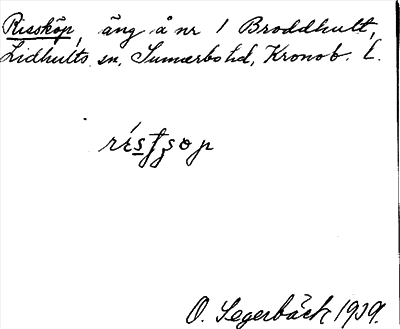 Rissköp, äng å nr 1 Broddhult,
Lidhults sn, Sunnerbo hd, Kronob. l.
O. Segerbäck 1939.